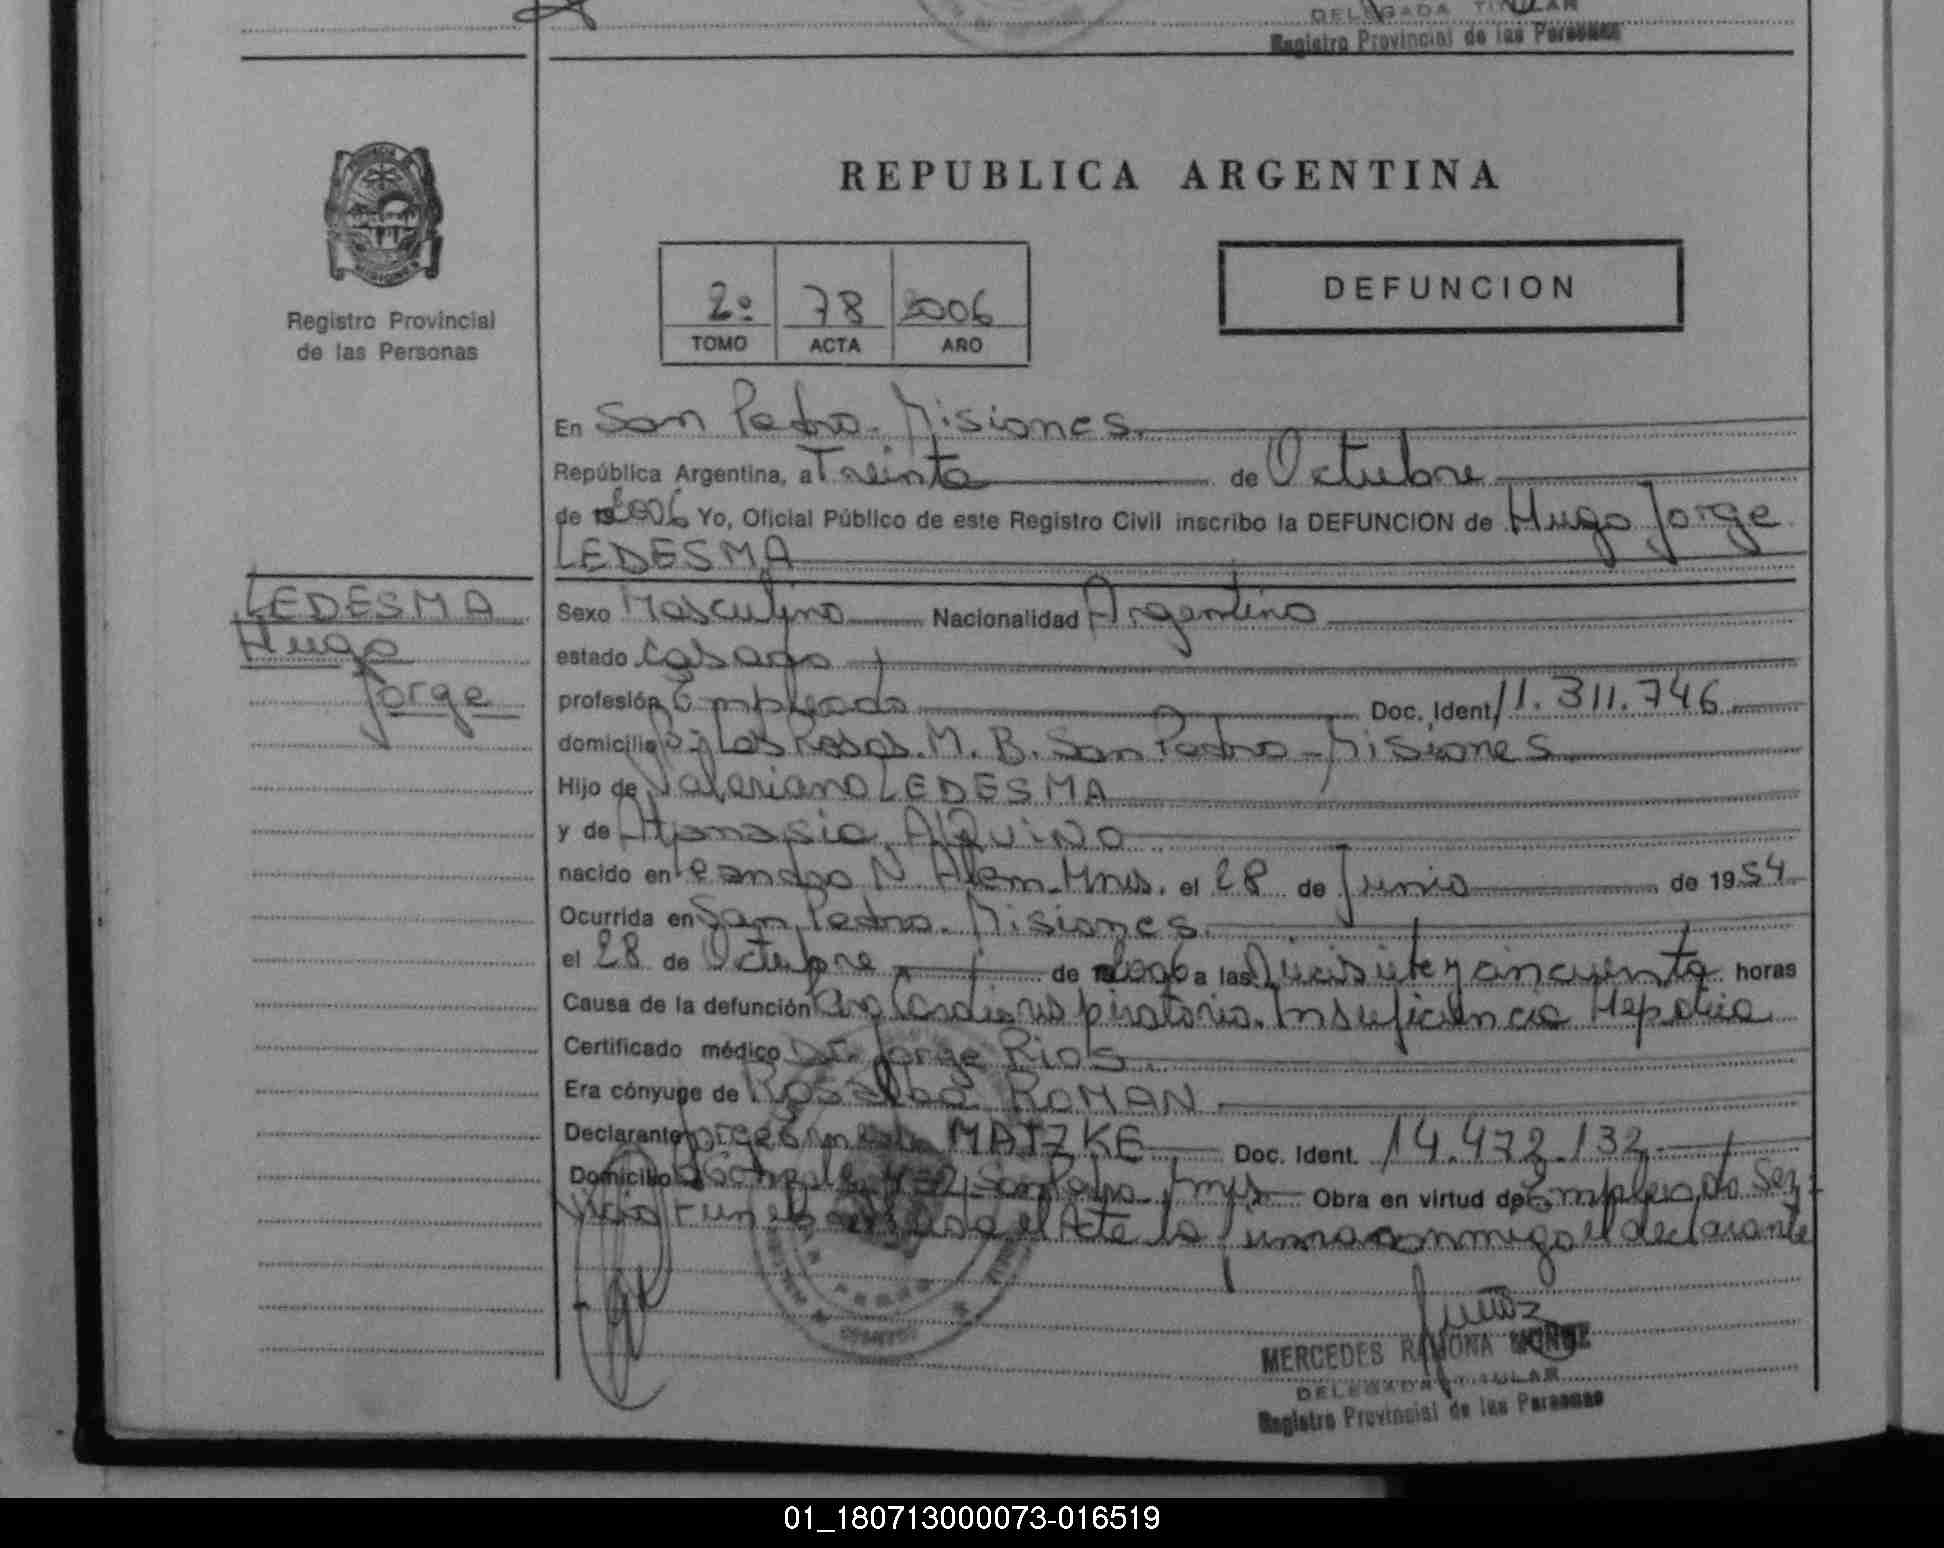 DELEGADA TITULAR
Registro Provincial de las Personas
REPUBLICA ARGENTINA
Registro Provincial
de las Personas
2º 78 2006
TOMO ACTA AÑO
DEFUNCION
En San Pedro - Misiones
República Argentina, a Treinta de Octubre
de 2006 Yo, Oficial Público de este Registro Civil inscribo la DEFUNCION de Hugo Jorge
LEDESMA
LEDESMA
Hugo
Jorge
Sexo Masculino Nacionalidad Argentino
estado Casado
profesión Empleado Doc. Ident. 11.311.746
domicilio Las Rosas. M. B. San Pedro - Misiones
Hijo de Valeriano LEDESMA
y de Atanasia AlQUiNO
nacido en Leandro N. Alem - Mnes. el 28 de Junio de 1954
Ocurrida en San Pedro - Misiones.
el 28 de Octubre de 2006 a las Diecisiete y cincuenta horas
Causa de la defunción Cardiorespiratorio. Insuficiencia Hepatica
Certificado médico Dr. Jorge Rios
Era cónyuge de ROMAN
Declarante Jorge Ernesto MATZKE Doc. Ident. 14.472.132
Domicilio San Pedro Mnes Obra en virtud de Empleado Ser-
vicio Funebre el Acta la firma conmigo el declarante
MERCEDES RAMONA
DELEGADA TITULAR
Registro Provincial de las Personas
01_180713000073-016519